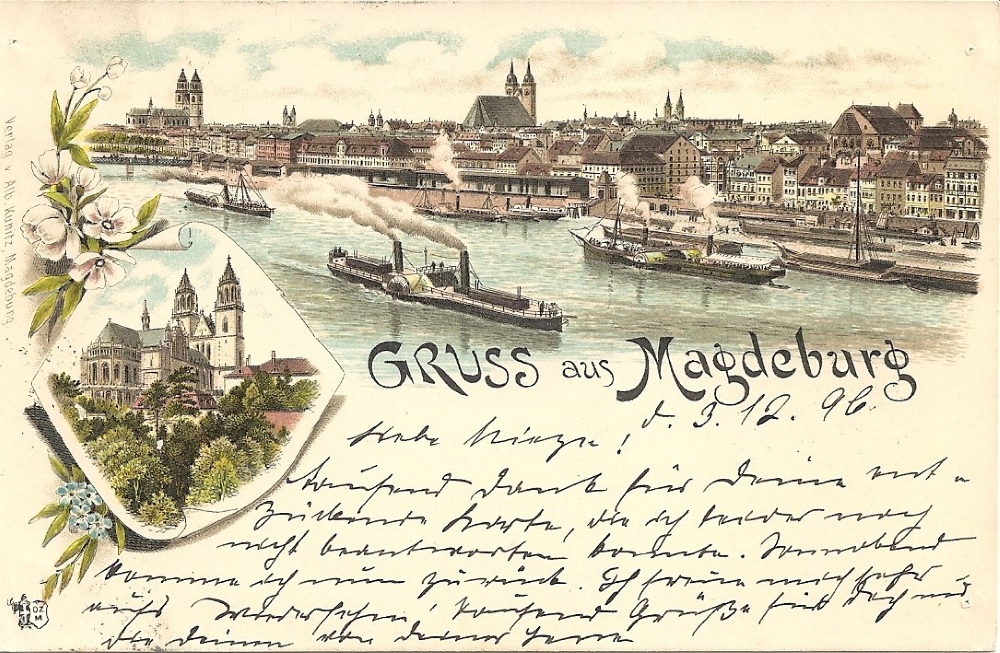 GRUSS aus Magdeburg
d. 3.12.96.
Liebe Miezn!
Tausend Dank für Deine ent-
zückende Karte, die ich leider noch
nicht beantworten konnte. Sonnabend
komme ich nun zurück. Ich freue mich sehr
aufs Wiedersehn! Tausend Grüße für Dich und
die Deinen von Deiner
Verlag v. Alb. Kunitz, Magdeburg
OZ
M